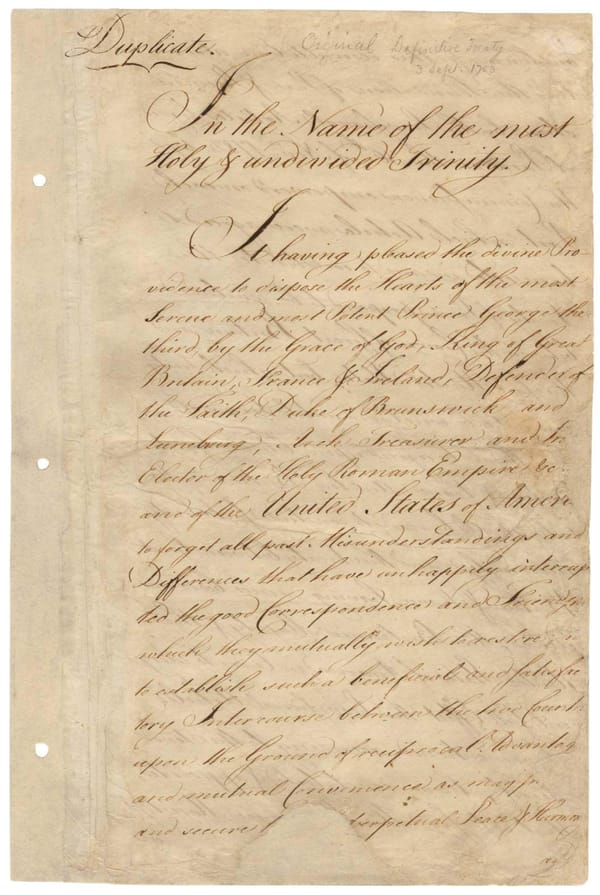 Duplicate.
Original Definitive Treaty
3 Sept. 1783
In the Name of the most
Holy & undivided Trinity.
It having pleased the divine Pro-
vidence to dispose the Hearts of the most
Serene and most Potent Prince George the
third, by the Grace of God, King of Great
Britain, France & Ireland, Defender of
the Faith, Duke of Brunswick and
Luneburg, Arch Treasurer and
Elector of the Holy Roman Empire &c.
and of the United States of Ameri
to forget all past Misunderstandings and
Differences that have unhappily interrup
ted the good Correspondence and Friendship
which they mutually wish to restore;
to establish such a beneficial and satisfac
tory Intercourse between the two Count
upon the Ground of reciprocal Advantag
and mutual Convenience as may
and secure perpetual Peace & Harmon